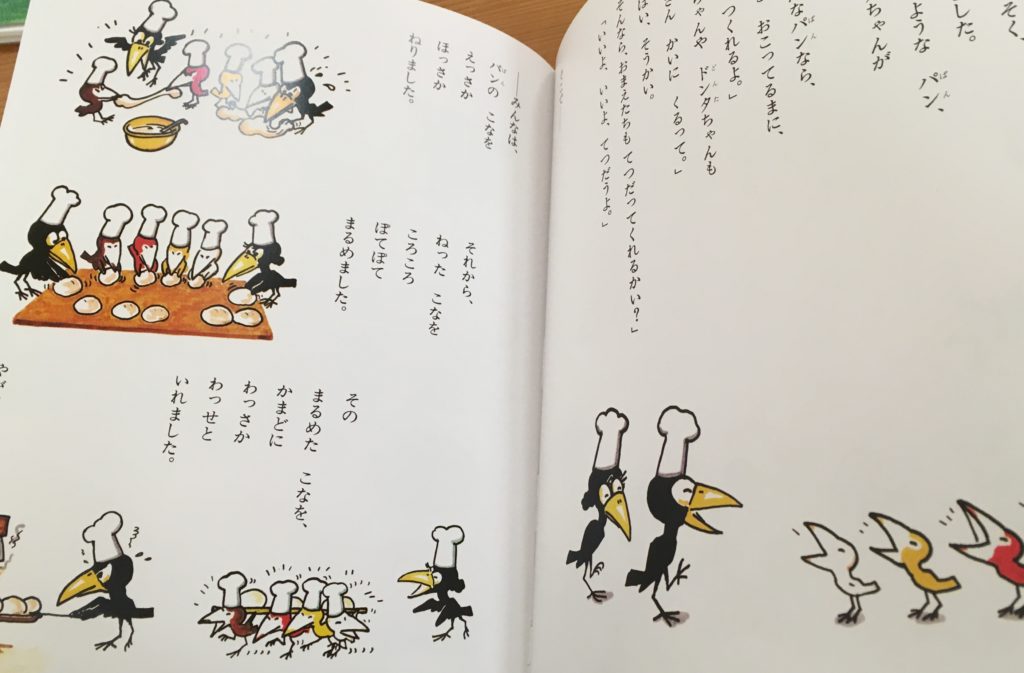 そく、
した。
ような パン、
ちゃんが
なパンなら、
おこってるまに、
つくれるよ。」
ちゃんや ドンタちゃんも
かいに くるって。」
そうかい。
そんなら、おまえたちも てつだってくれるかい？」
「いいよ、いいよ、てつだうよ。」
――みんなは、
パンの こなを
えっさか
ほっさか
ねりました。
それから、
ねった こなを
ころころ
ぽてぽて
まるめました。
その
まるめた こなを、
かまどに
わっさか
わっせと
いれました。